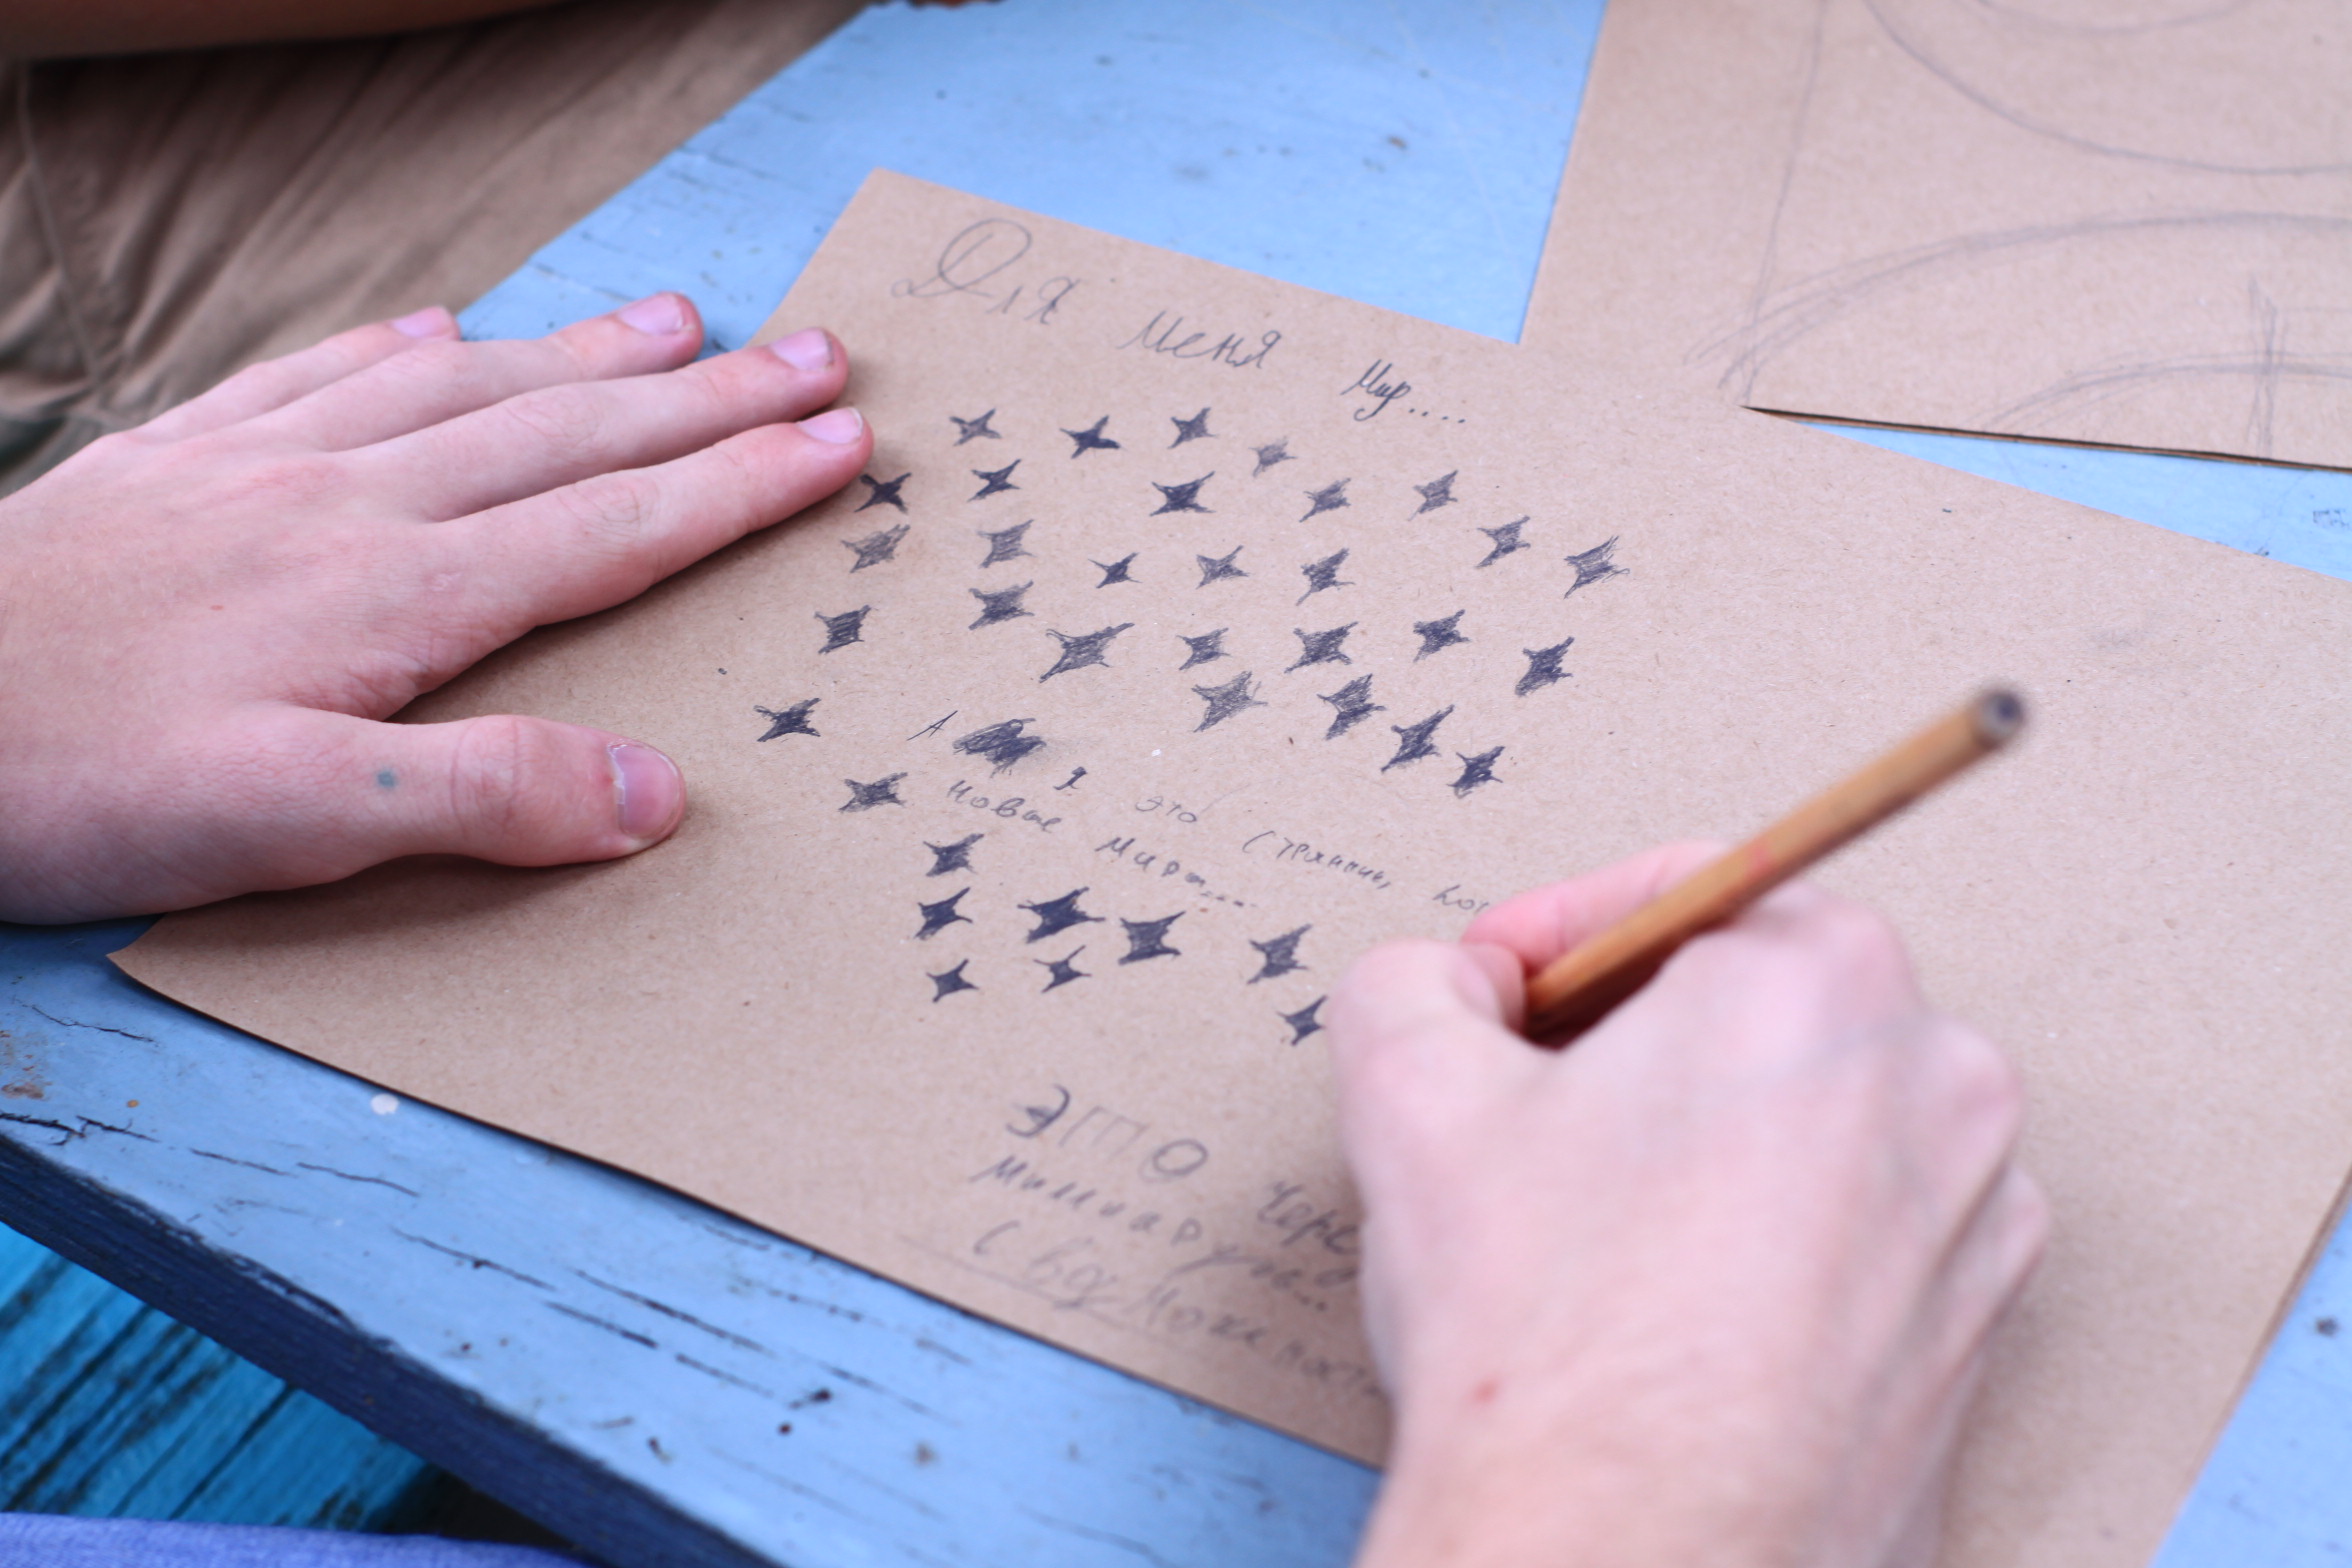 Для меня Мир....
А я это странник,
новые Миры....
ЭТО Чере
Миллиард
с возможност